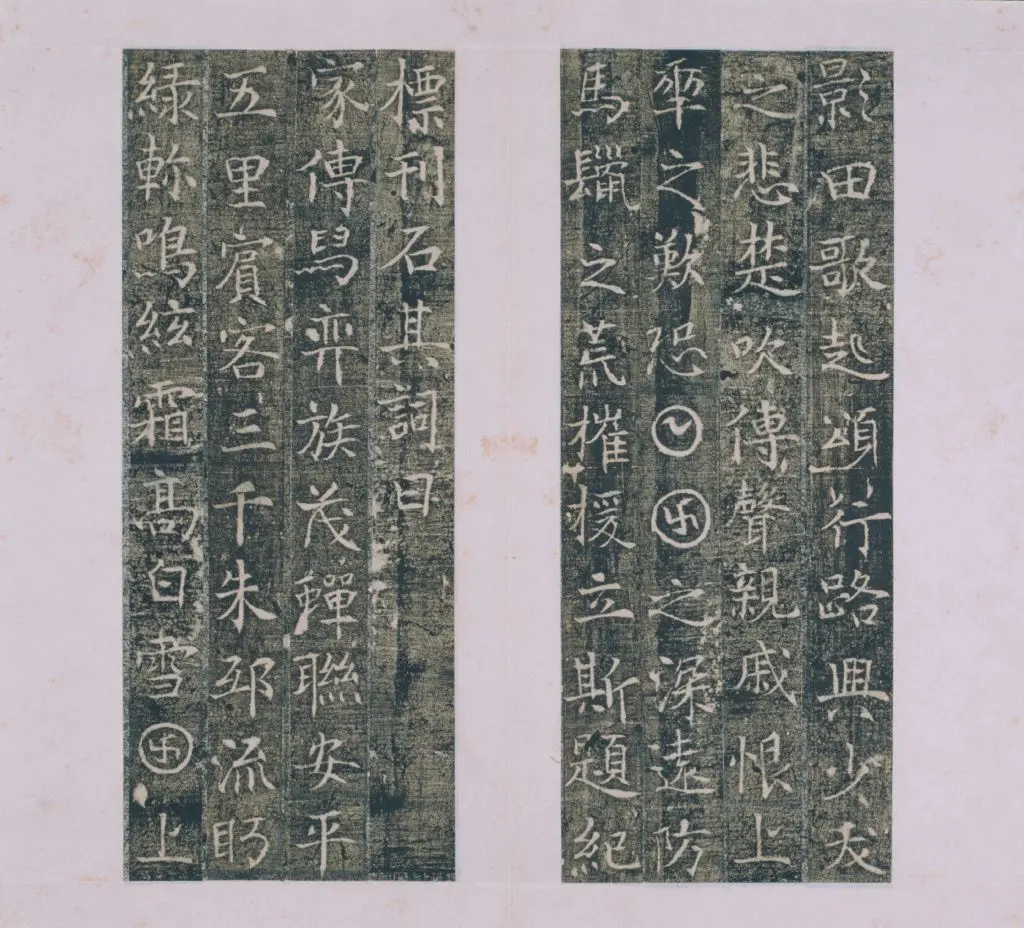 影田歌起頌行路興少犮
之悲楚吹傳聲親戚恨上
率之歎恐𡆠𠥱之深遠防
馬鬣之荒摧援立斯題紀
標刊石其詞曰
家傳舄弈族茂蟬聯安平
五里賓客三千朱邸流眄
綠軫鳴絃霜高白雪𠥱上